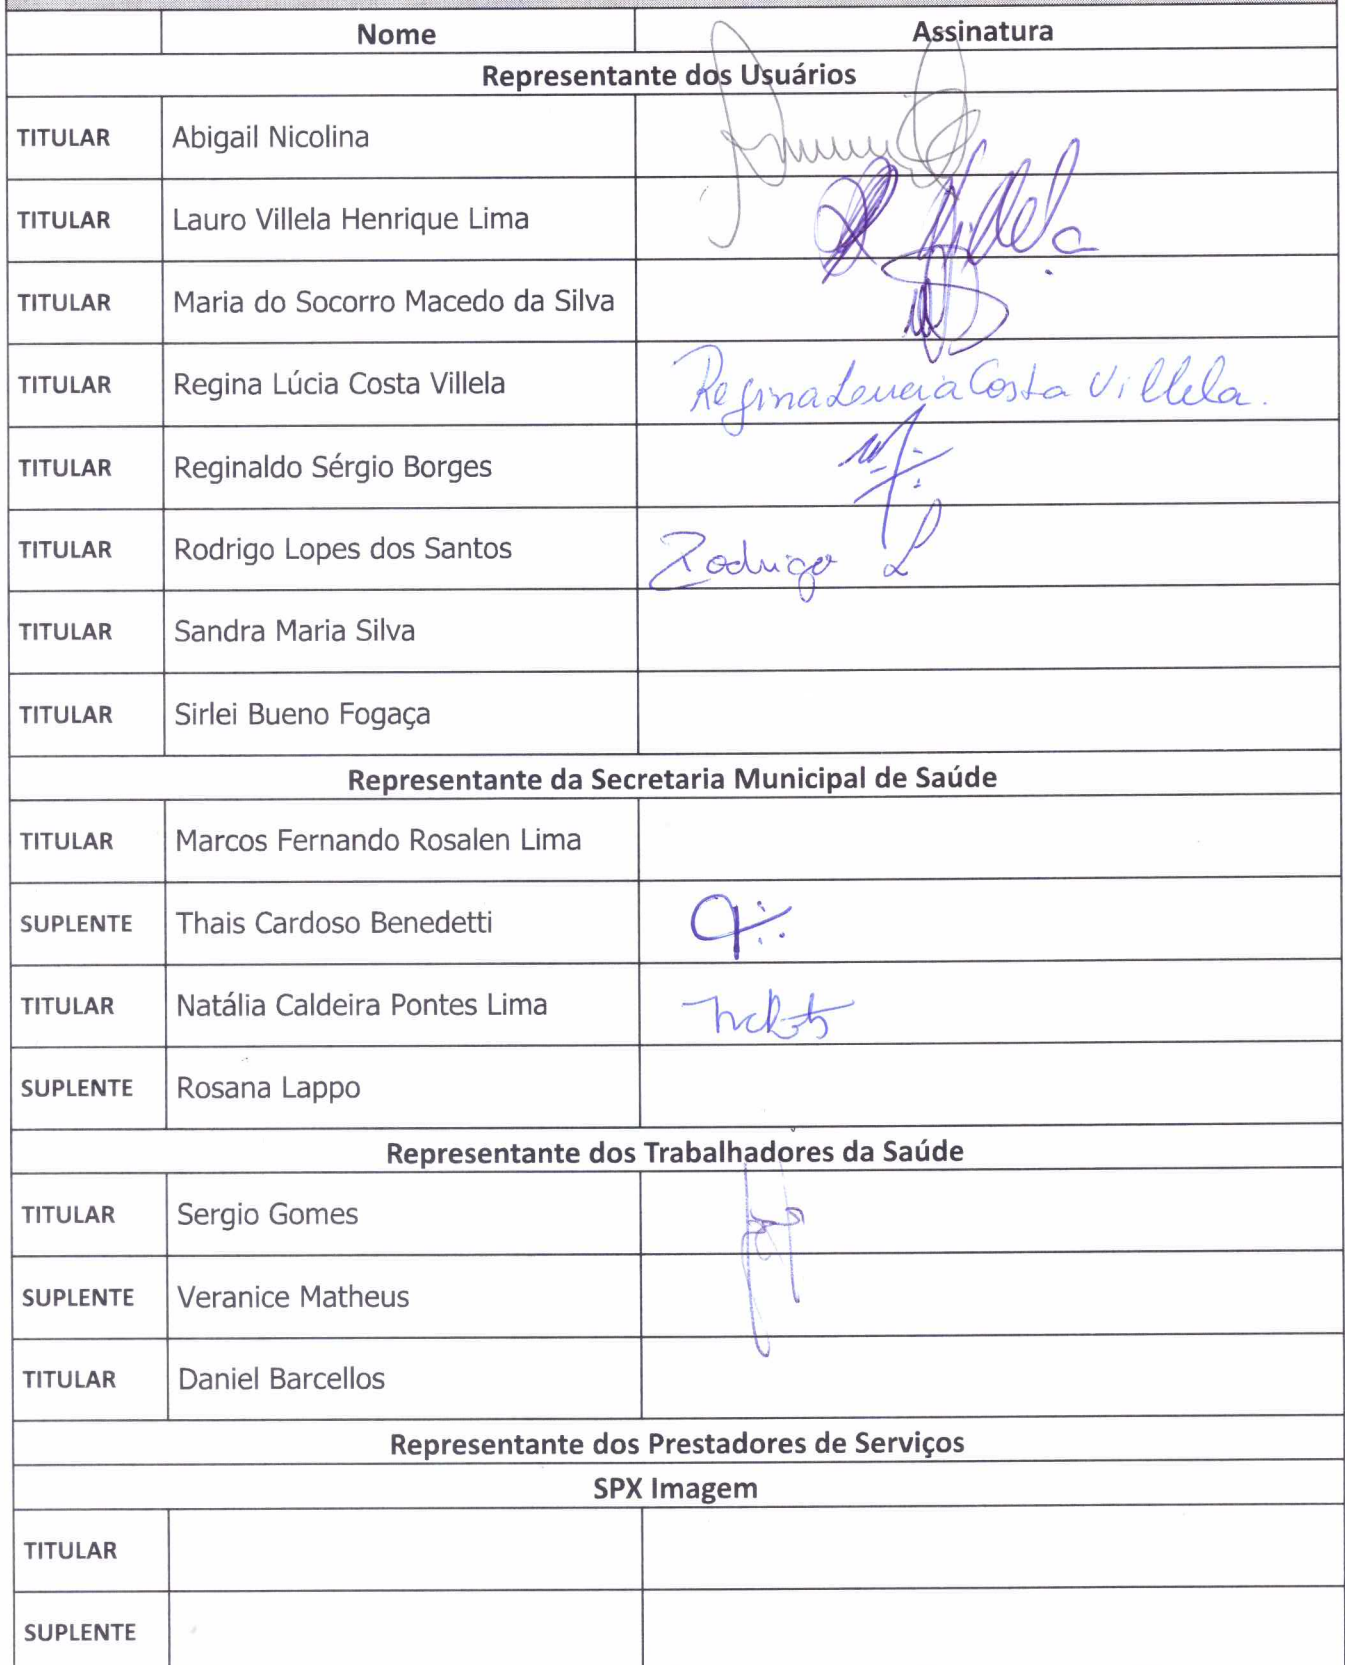 Nome Assinatura
Representante dos Usuários
TITULAR Abigail Nicolina
TITULAR Lauro Villela Henrique Lima
TITULAR Maria do Socorro Macedo da Silva
TITULAR Regina Lúcia Costa Villela Regina Lucia Costa Villela.
TITULAR Reginaldo Sérgio Borges
TITULAR Rodrigo Lopes dos Santos Rodrigo L
TITULAR Sandra Maria Silva
TITULAR Sirlei Bueno Fogaça
Representante da Secretaria Municipal de Saúde
TITULAR Marcos Fernando Rosalen Lima
SUPLENTE Thais Cardoso Benedetti
TITULAR Natália Caldeira Pontes Lima
SUPLENTE Rosana Lappo
Representante dos Trabalhadores da Saúde
TITULAR Sergio Gomes
SUPLENTE Veranice Matheus
TITULAR Daniel Barcellos
Representante dos Prestadores de Serviços
SPX Imagem
TITULAR
SUPLENTE